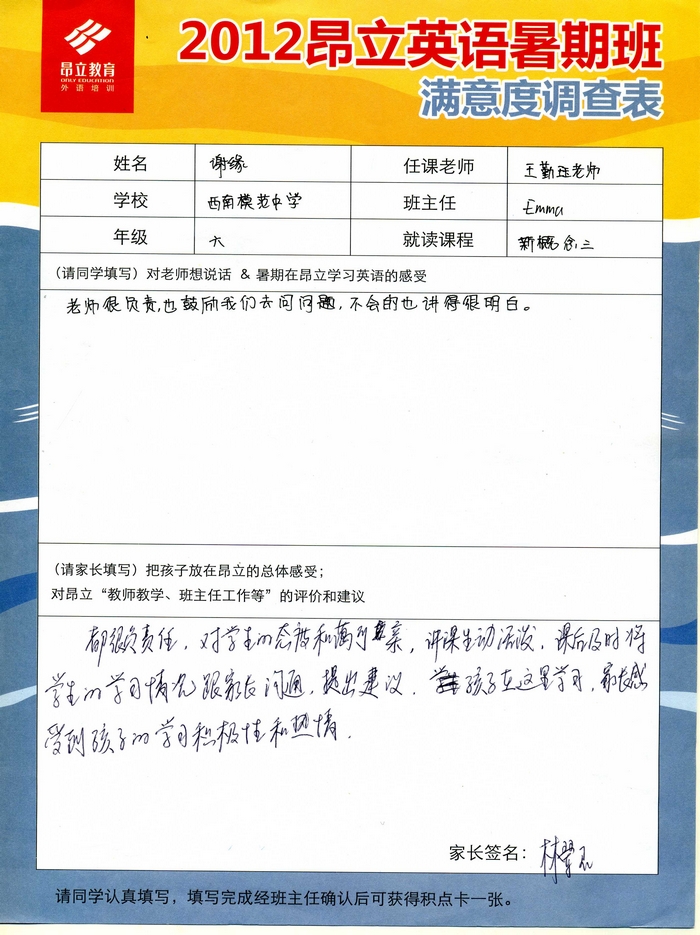 昂立教育
ONLY EDUCATION
外语培训
2012昂立英语暑期班
满意度调查表
姓名 谢缘 任课老师 王勤珏老师
学校 西南模范中学 班主任 Emma
年级 六 就读课程 新概念三
(请同学填写) 对老师想说话 & 暑期在昂立学习英语的感受
老师很负责,也鼓励我们去问问题,不会的也讲得很明白。
(请家长填写) 把孩子放在昂立的总体感受;
对昂立“教师教学、班主任工作等”的评价和建议
都很负责任,对学生的态度和蔼可亲,讲课生动活泼,课后及时将
学生的学习情况跟家长沟通,提出建议。孩子在这里学习,家长感
受到孩子的学习积极性和热情.
家长签名: 林
请同学认真填写,填写完成经班主任确认后可获得积点卡一张。